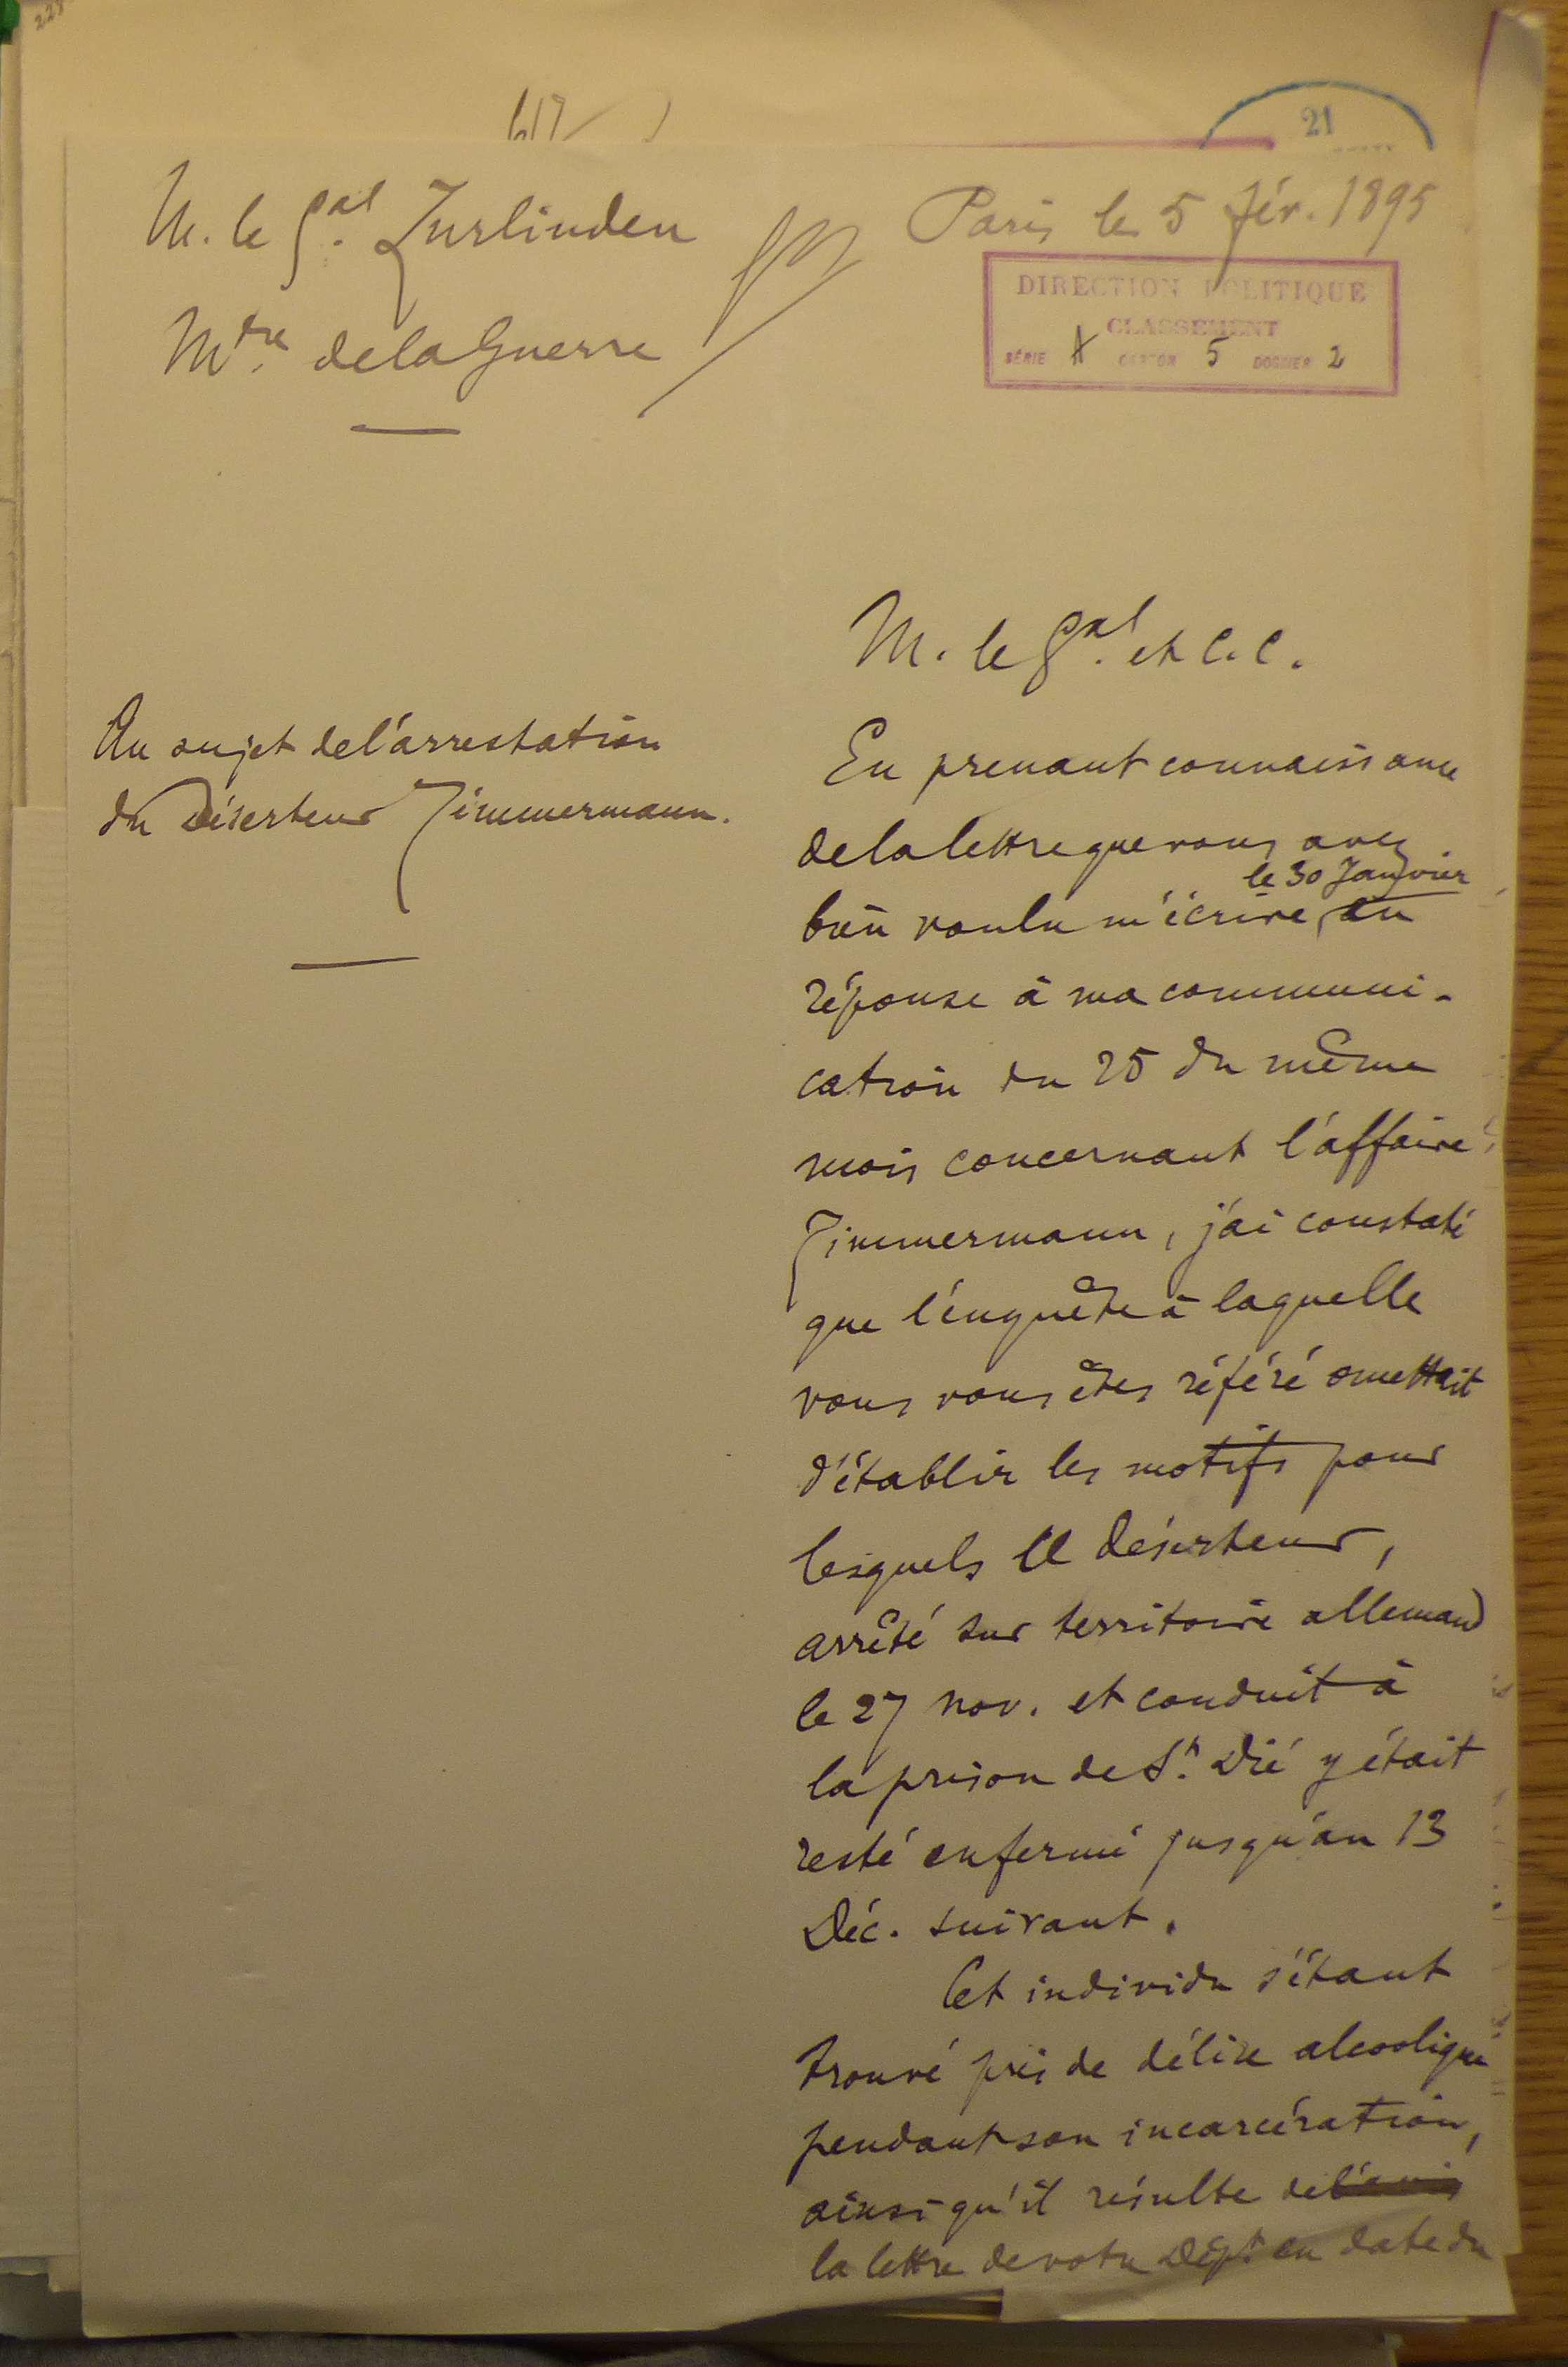 21
M. le Gal. Zurlinden
Mtre. de la Guerre
Paris le 5 fév. 1895
DIRECTION POLITIQUE
CLASSEMENT
SÉRIE A CARTON 5 DOSSIER 2
M. le Gal. et c. c.
Au sujet de l'arrestation
du Déserteur Zimmermann.
En prenant connaissance
de la lettre que vous avez
le 30 Janvier
bien voulu m'écrire, en
réponse à ma communi-
cation du 25 du même
mois concernant l'affaire
Zimmermann, j'ai constaté
que l'enquête à laquelle
vous vous êtes référé omettait
d'établir les motifs pour
lesquels le déserteur,
arrêté sur territoire allemand
le 27 nov. et conduit à
la prison de St. Dié y était
resté enfermé jusqu'au 13
Déc. suivant.
Cet individu s'étant
trouvé pris de délire alcoolique
pendant son incarcération,
ainsi qu'il résulte de
la lettre de votre Dépt. en date du